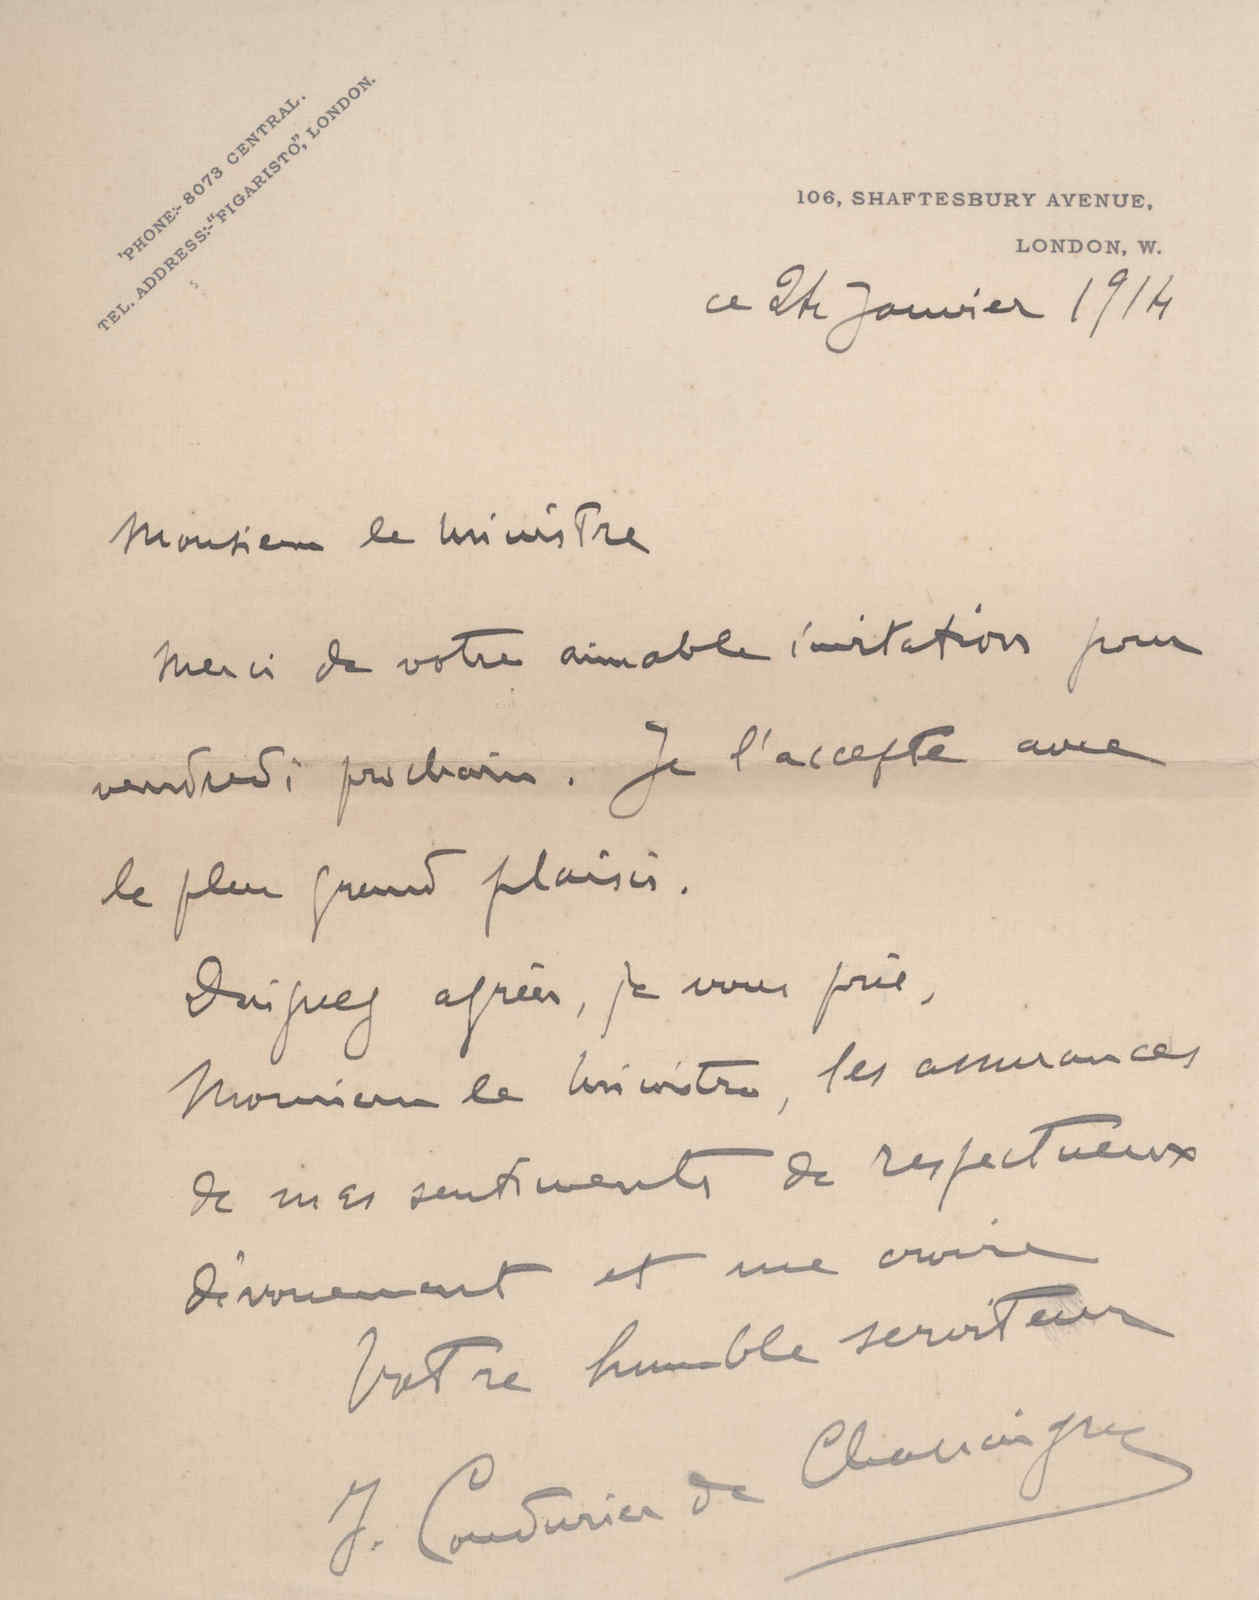 'PHONE:- 8073 CENTRAL.
TEL. ADDRESS:- "FIGARISTO", LONDON.
106, SHAFTESBURY AVENUE,
LONDON, W.
ce 24 Janvier 1914
Monsieur le Ministre
Merci de votre aimable invitation pour
vendredi prochain. Je l'accepte avec
le plus grand plaisir.
Daignez agréer, je vous prie,
Monsieur le Ministre, les assurances
de mes sentiments de respectueux
dévouement et me croire
Votre humble serviteur
J. Coudurier de Chassaigne